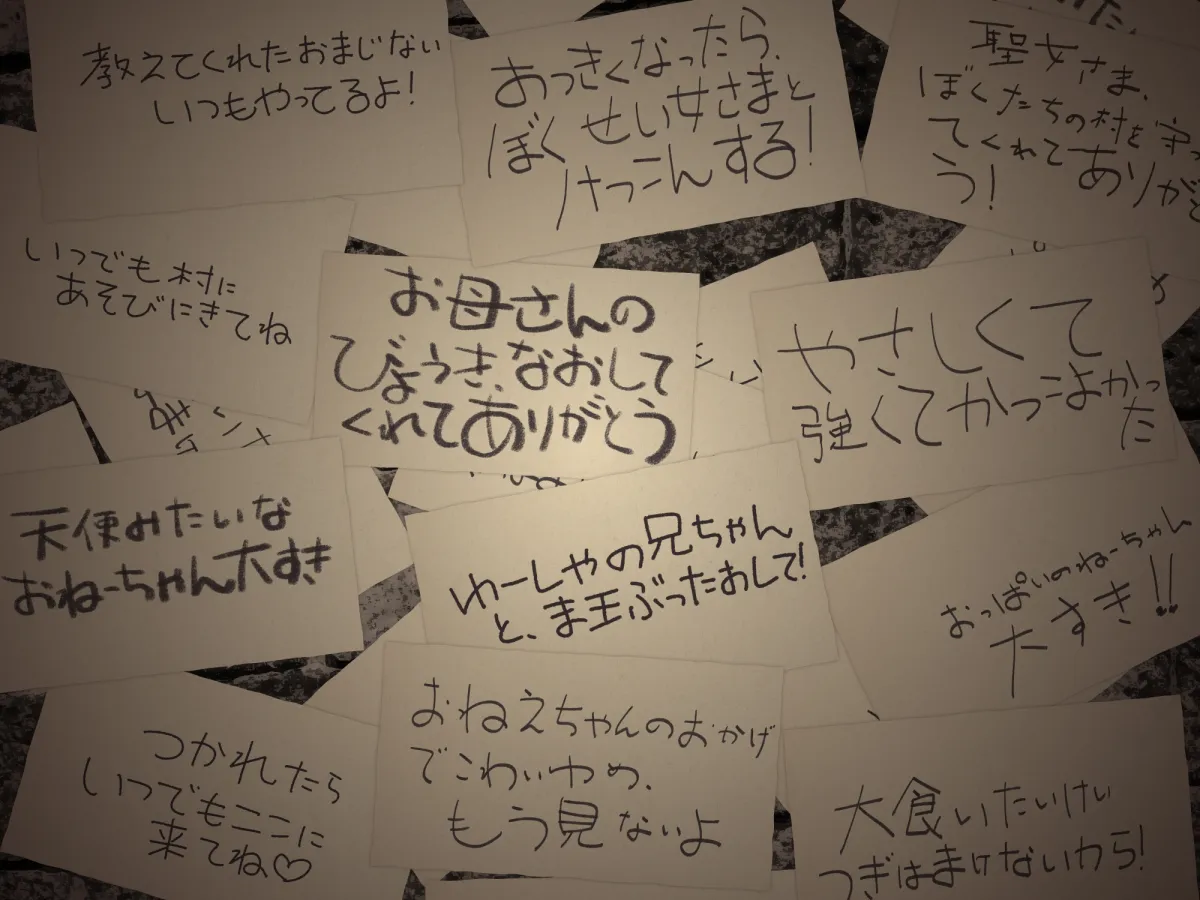 教えてくれたおまじない
いつもやってるよ!
おっきくなったら、
ぼくせい女さまと
けっこんする!
聖女さま、
ぼくたちの村を守っ
てくれてありがと
う!
いつでも村に
あそびにきてね
お母さんの
びょうき、なおして
くれてありがとう
やさしくて
強くてかっこよかっ
た
天使みたいな
おねーちゃん大すき
ゆーしゃの兄ちゃん
と、ま王ぶったおして!
おっぱいのねーちゃん
たすき!!
つかれたら
いつでもここに
来てね♡
おねえちゃんのおかげ
でこわいゆめ、
もう見ないよ
大食いたいけつ
つぎはまけないから!